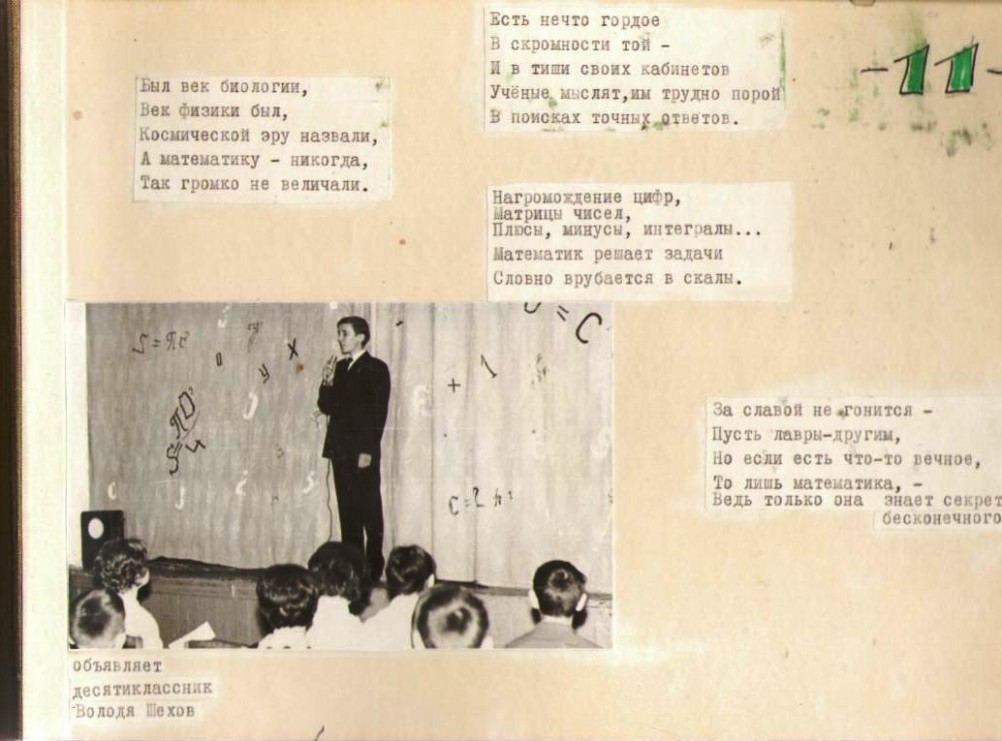 -11-
Был век биологии,
Век физики был,
Космической эру назвали,
А математику - никогда,
Так громко не величали.
Есть нечто гордое
В скромности той -
И в тиши своих кабинетов
Учёные мыслят,им трудно порой
В поисках точных ответов.
Нагромождение цифр,
Матрицы чисел,
Плюсы, минусы, интегралы...
Математик решает задачи
Словно врубается в скалы.
За славой не гонится -
Пусть лавры-другим,
Но если есть что-то вечное,
То лишь математика, -
Ведь только она знает секрет
бесконечного
x
y
+ 1
= C
объявляет
десятиклассник
Володя Шехов